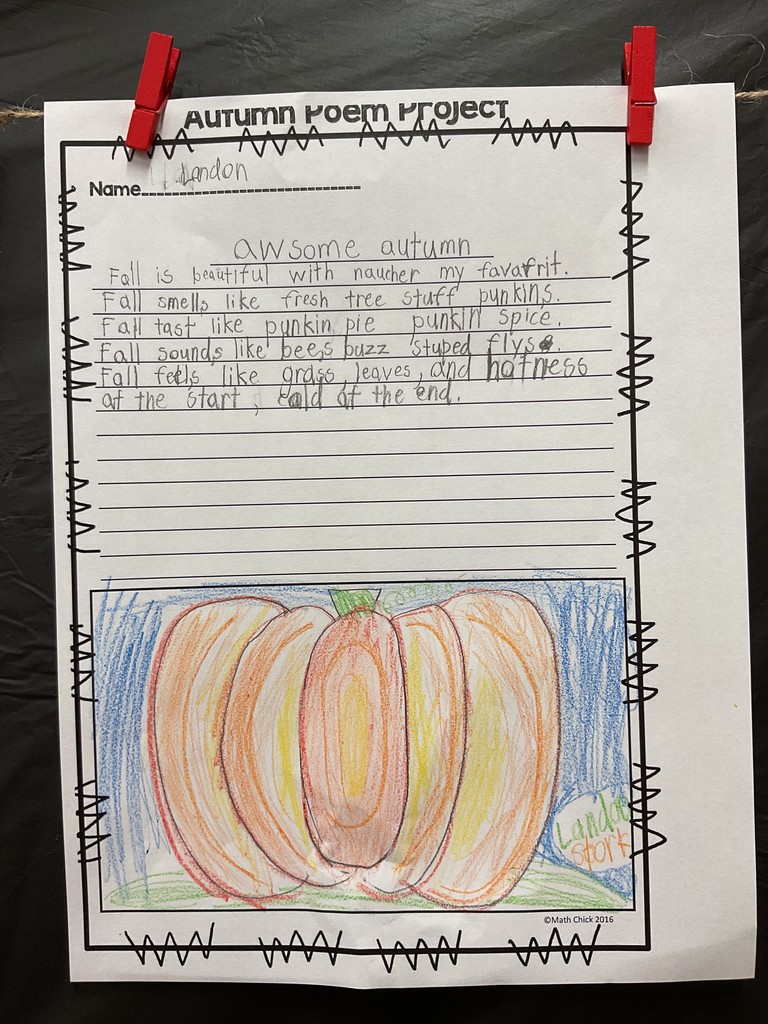 Autumn Poem Project
Name Landon
awsome autumn
Fall is beautiful with naucher my favafrit.
Fall smells like fresh tree stuff punkins.
Fall tast like punkin pie punkin spice.
Fall sounds like bees buzz stuped flys.
Fall feels like grass, leaves, and hotness
at the start, cold at the end.
Landon
Spork
©Math Chick 2016